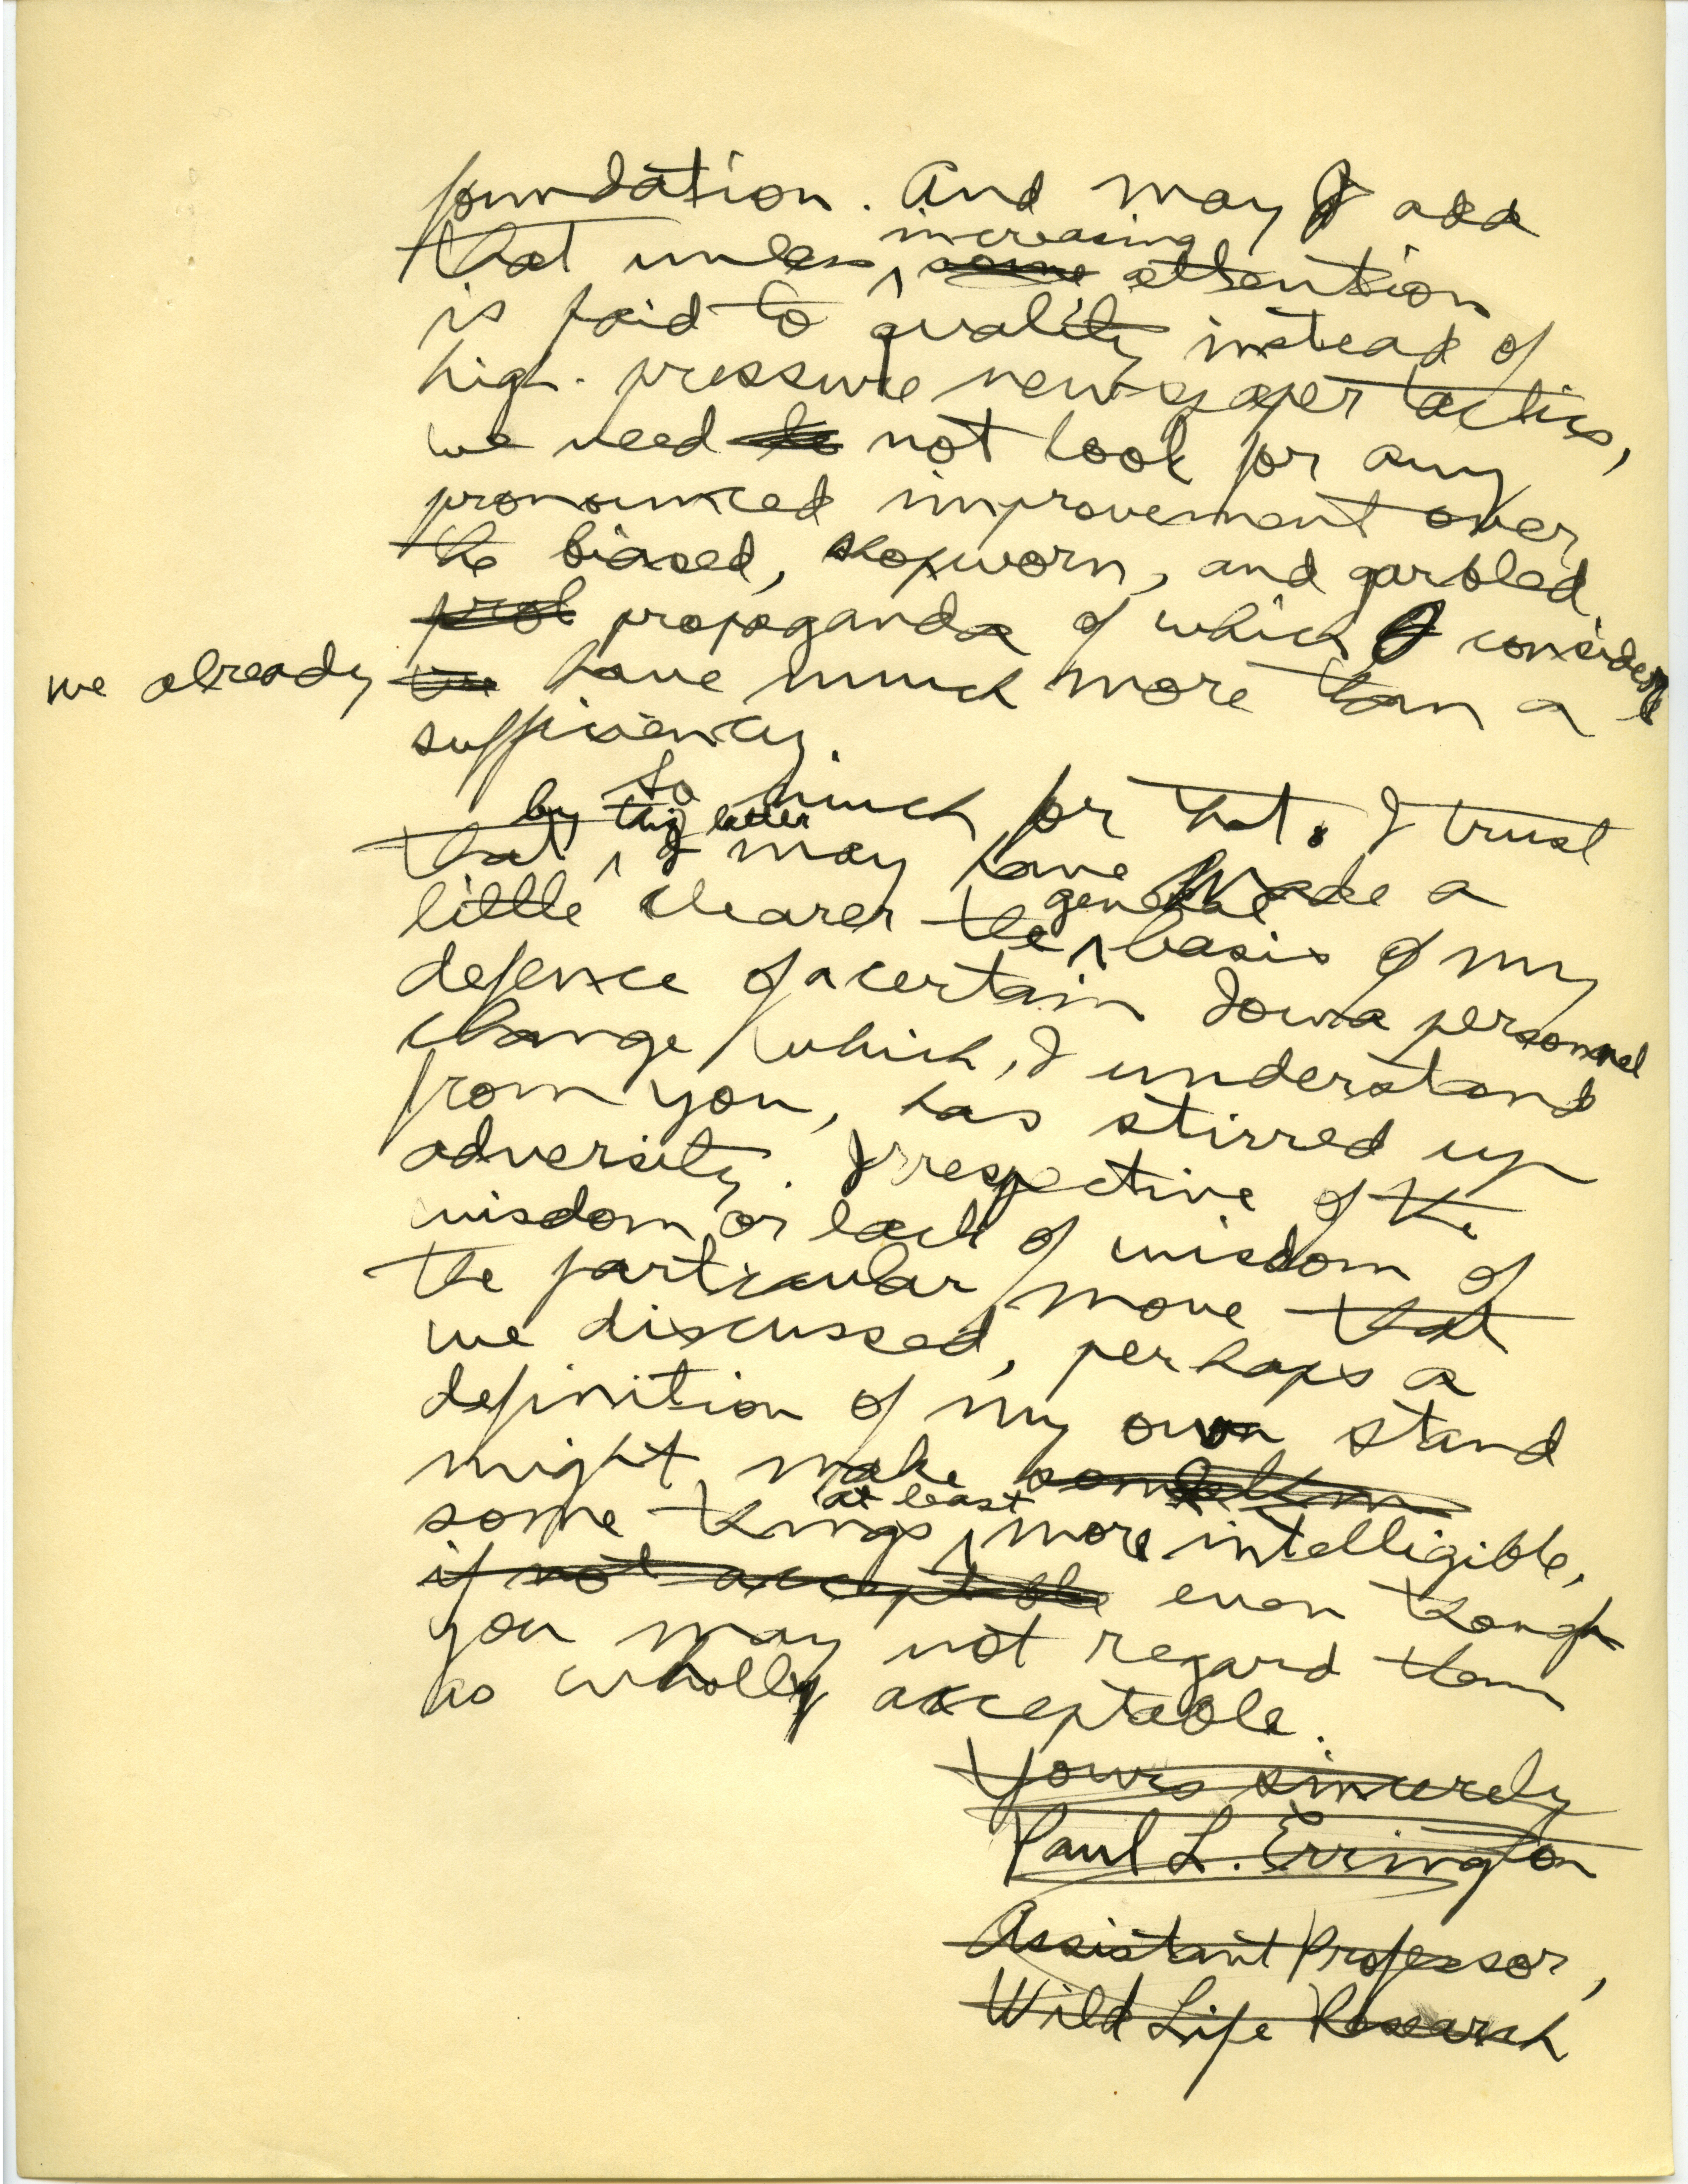 foundation. And may I add
increasing
that unless some attention
is paid to quality instead of
high-pressure newspaper tactics,
we need to not look for any
pronounced improvement over
the biased, shopworn, and garbled
prot propaganda of which I consider
we already we have much more than a
sufficiency.
So much for that. I trust
by this letter
that I may have made a
general
little clearer the basis of my
defence of a certain Iowa personnel
change which, I understand
from you, has stirred up
adversity. Irrespective of the
wisdom or lack of wisdom of
the particular move that
we discussed, perhaps a
definition of my own stand
might make
at least
some things more intelligible,
if not acceptable even though
you may not regard them
as wholly acceptable.
Yours sincerely
Paul L. Errington
Assistant Professor,
Wild Life Research